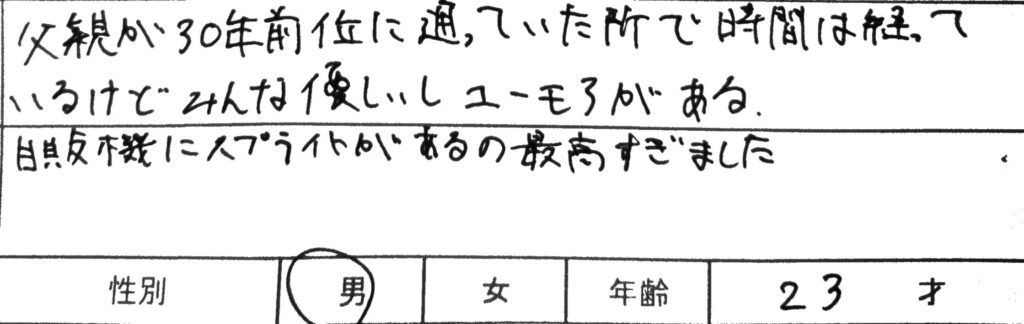 父親が30年前位に通っていた所で時間は経って
いるけどみんな優しいしユーモアがある.
自販機にスプライトがあるの最高すぎました
性別 男 女 年齢 23 才